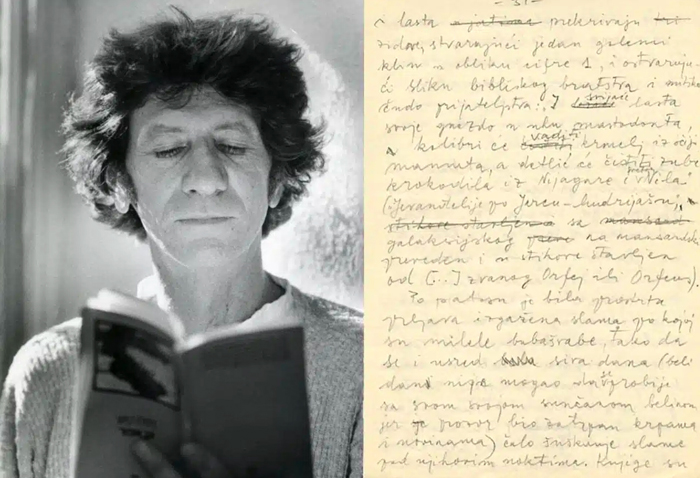 - 31 -
i lasta prekrivaju
zidove, stvarajući jedan golemi
klin u obliku cifre 1, i ostvaruju-
ći sliku biblijskog bratstva i
čudo prijateljstva: „I lasta
svoje gnezdo u uhu mastodonta,
a kolibri će vaditi krmelj iz očiju
mamuta, a detlić će čistiti zube
krokodila iz Nijagare i Nila"
(Jevanđelije po Jercu-mudrijašu),
stihove stavljen a sa mansard
galaksijskog na mansardski
preveden i u stihove stavljen
od [...] zvanog Orfej ili Orfeus).
Po patosu je bila prostrta
prljava izgažena slama po kojoj
su milele bubašvabe, tako da
se i usred siva dana (beli
dani nije mogao da probije
sa svom svojom sunčanom belinom
jer je prozor bio zatrpan krpama
i novinama) čulo šuškanje slame
pod njihovim noktima. Knjige su